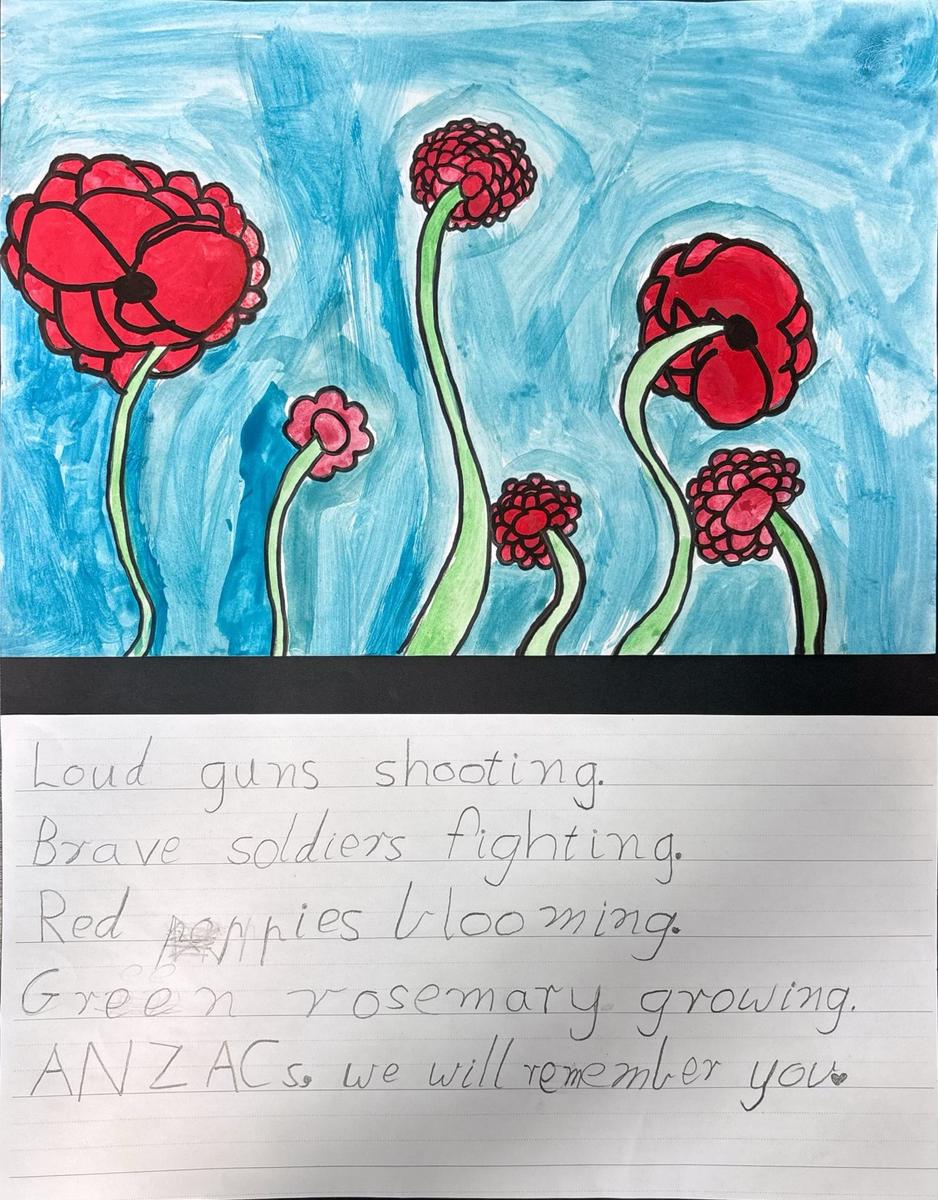 Loud guns shooting.
Brave soldiers fighting.
Red poppies blooming.
Green rosemary growing.
ANZACs, we will remember you.